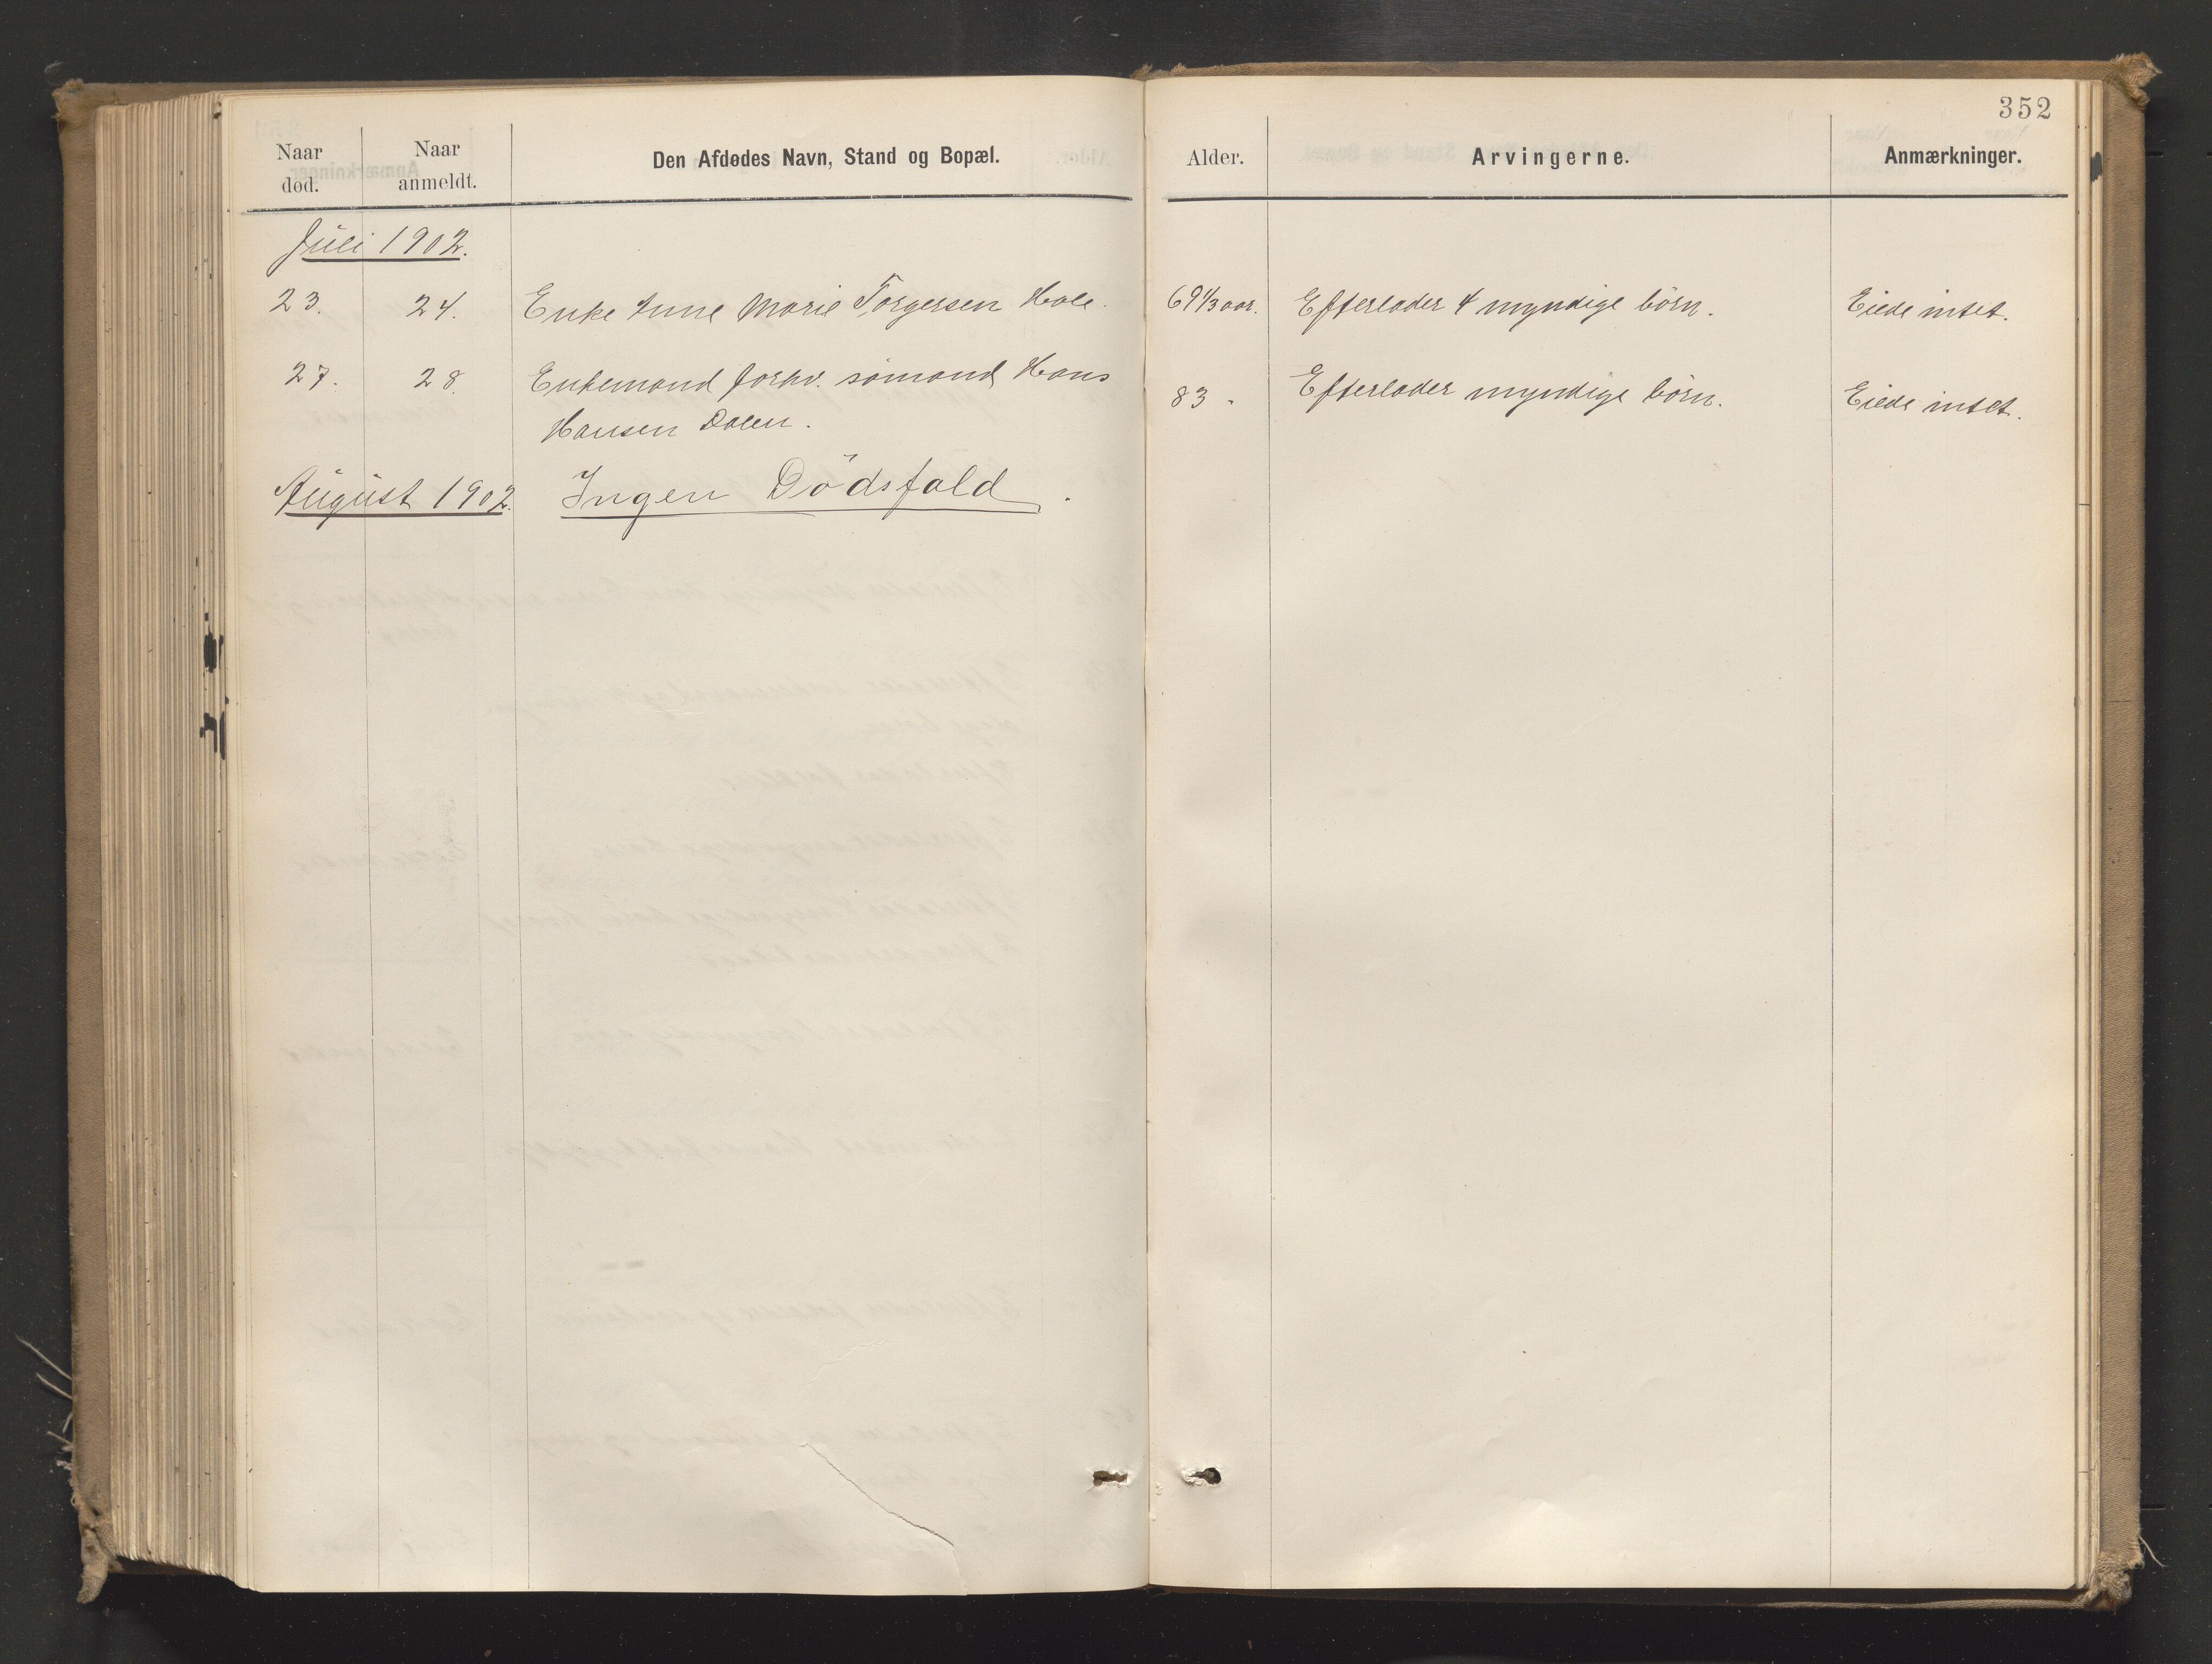 352
Naar død. Naar anmeldt. Den Afdødes Navn, Stand og Bopæl. Alder. Arvingerne. Anmærkninger.
Juli 1902.
23. 24. Enke Anne Marie Torgersen Hole. 69 1/3 aar. Efterlader 4 myndige börn. Eiede intet.
27. 28. Enkemand forhv. sömand Hans
Hansen Dalen. 83 " Efterlader myndige börn. Eiede intet.
August 1902. Ingen Dödsfald.